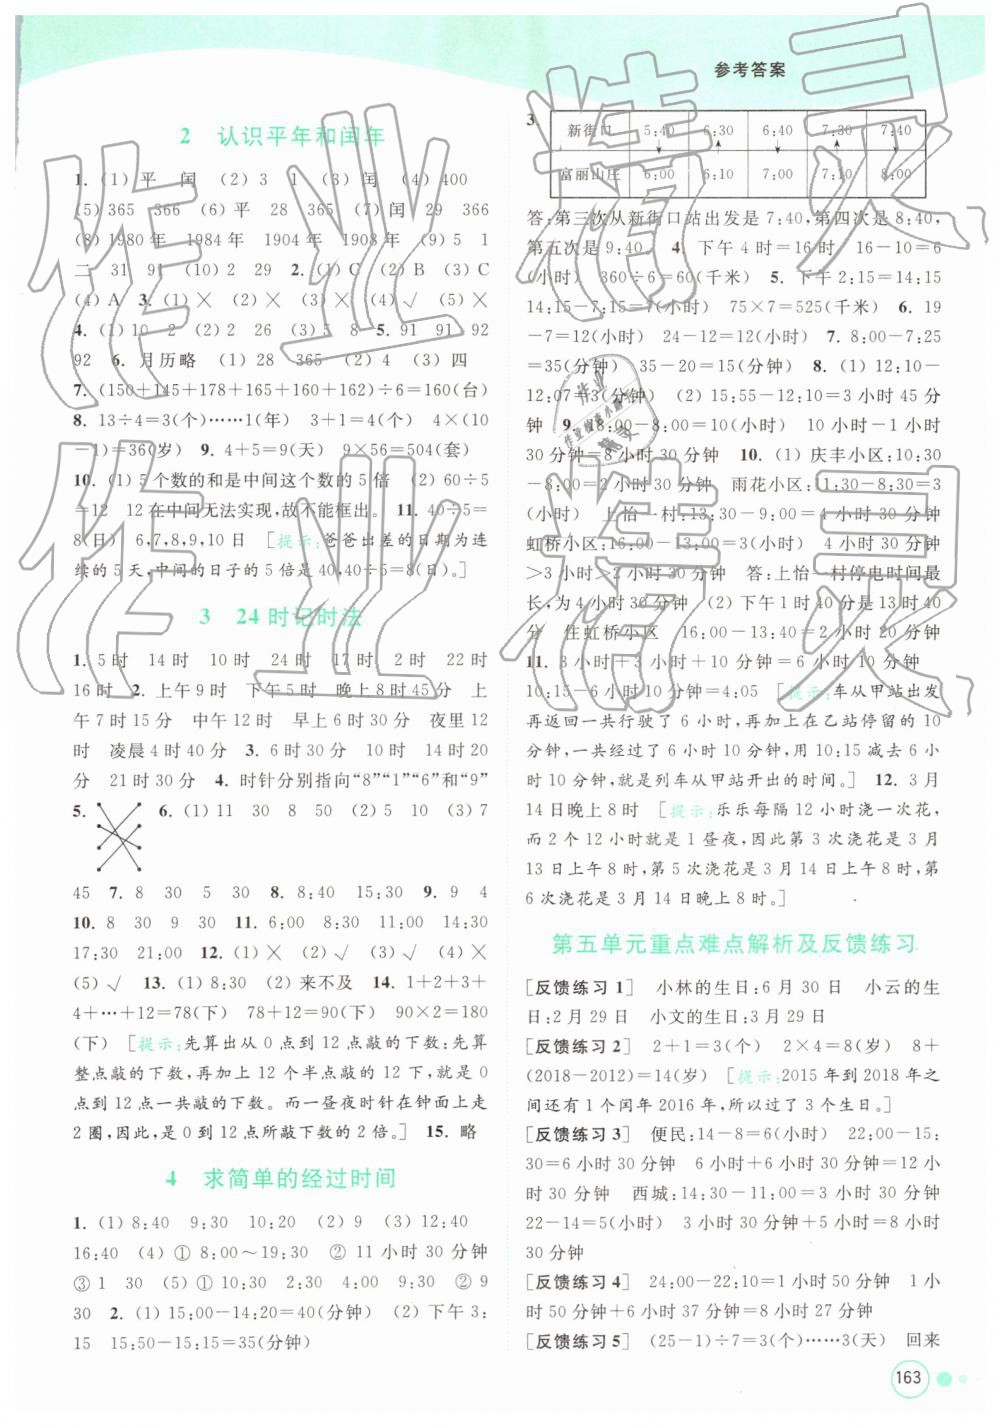 参考答案
2 认识平年和闰年
1. (1)平 闰 (2)3 1 (3)闰 (4)400
(5)365 366 (6)平 28 365 (7)闰 29 366
(8)1980年 1984年 1904年 1908年 (9)5 1
二 31 91 (10)2 29 2. (1)C (2)B (3)C
(4)A 3. (1)× (2)× (3)× (4)√ (5)×
4. (1)10 2 (2)2 26 (3)5 8 5. 91 91 92
92 6. 月历略 (1)28 365 (2)4 (3)四
7. (150+145+178+165+160+162)÷6=160(台)
8. 13÷4=3(个)……1(年) 3+1=4(个) 4×(10
-1)=36(岁) 9. 4+5=9(天) 9×56=504(套)
10. (1)5个数的和是中间这个数的5倍 (2)60÷5
=12 12在中间无法实现,故不能框出。 11. 40÷5=
8(日) 6,7,8,9,10日 [提示:爸爸出差的日期为连
续的5天,中间的日子的5倍是40,40÷5=8(日)。]
3 24时记时法
1. 5时 14时 10时 24时 17时 2时 22时
16时 2. 上午9时 下午5时 晚上8时45分 上
午7时15分 中午12时 早上6时30分 夜里12
时 凌晨4时40分 3. 6时30分 10时 14时 20
分 21时30分 4. 时针分别指向“8”“1”“6”和“9”
5. 6. (1)11 30 8 50 (2)5 10 (3)7
45 7. 8 30 5 30 8. 8:40 15:30 9. 9 4
10. 8 30 9 30 11. 6:00 8:30 11:00 14:30
17:30 21:00 12. (1)× (2)√ (3)√ (4)×
(5)√ 13. (1)8:30 (2)来不及 14. 1+2+3+
4+…+12=78(下) 78+12=90(下) 90×2=180
(下) [提示:先算出从0点到12点敲的下数;先算
整点敲的下数,再加上12个半点敲的12下,就是0
点到12点一共敲的下数。而一昼夜时针在钟面上走
2圈,因此,是0到12点所敲下数的2倍。] 15. 略
4 求简单的经过时间
1. (1)8:40 9:30 10:20 (2)9 (3)12:40
16:40 (4)① 8:00～19:30 ② 11小时30分钟
③ 1 30 (5)① 10:29 19:59 ② 9
30 2. (1)15:00-14:20=40(分钟) (2)下午3:
15 15:50-15:15=35(分钟)
3.
新街口 5:40 6:30 6:40 7:30 7:40
富丽山庄 6:00 6:10 7:00 7:10 8:00
答:第三次从新街口站出发是7:40,第四次是8:40,
第五次是9:40。 4. 下午4时=16时 16-10=6
(小时) 360÷6=60(千米) 5. 下午2:15=14:15
14:15-7:15=7(小时) 75×7=525(千米) 6. 19
-7=12(小时) 24-12=12(小时) 7. 8:00-7:25
=35(分钟) 35-20=15(分钟) 8. (1)12:10-
12:07=3(分钟) (2)15:55-12:10=3小时45分
钟 9. 18:00-8:00=10(小时) 10小时-1小时
30分钟=8小时30分钟 10. (1)庆丰小区:10:30
-8:00=2小时30分钟 雨花小区:11:30-8:30=3
(小时) 上怡一村:13:30-9:00=4小时30分钟
虹桥小区:16:00-13:00=3(小时) 4小时30分钟
>3小时>2小时30分钟 答:上怡一村停电时间最
长,为4小时30分钟 (2)下午1时40分=13时40
分 住虹桥小区 16:00-13:40=2小时20分钟
11. 3小时+3小时+10分钟=6小时10分钟
10:15-6小时10分钟=4:05 [提示:车从甲站出发
再返回一共行驶了6小时,再加上在乙站停留的10
分钟,一共经过了6小时10分钟,用10:15减去6小
时10分钟,就是列车从甲站开出的时间。] 12. 3月
14日晚上8时 [提示:乐乐每隔12小时浇一次花,
而2个12小时就是1昼夜,因此第3次浇花是3月
13日上午8时,第5次浇花是3月14日上午8时,第
6次浇花是3月14日晚上8时。]
第五单元重点难点解析及反馈练习
[反馈练习1] 小林的生日:6月30日 小云的生
日:2月29日 小文的生日:3月29日
[反馈练习2] 2+1=3(个) 2×4=8(岁) 8+
(2018-2012)=14(岁) [提示:2015年到2018年之
间还有1个闰年2016年,所以过了3个生日。]
[反馈练习3] 便民:14-8=6(小时) 22:00-15:
30=6小时30分钟 6小时+6小时30分钟=12小
时30分钟 西城:14:30-11:00=3小时30分钟
22-14=5(小时) 3小时30分钟+5小时=8小时
30分钟
[反馈练习4] 24:00-22:10=1小时50分钟 1小
时50分钟+6小时37分钟=8小时27分钟
[反馈练习5] (25-1)÷7=3(个)……3(天) 回来
163
作业精灵
作业精灵